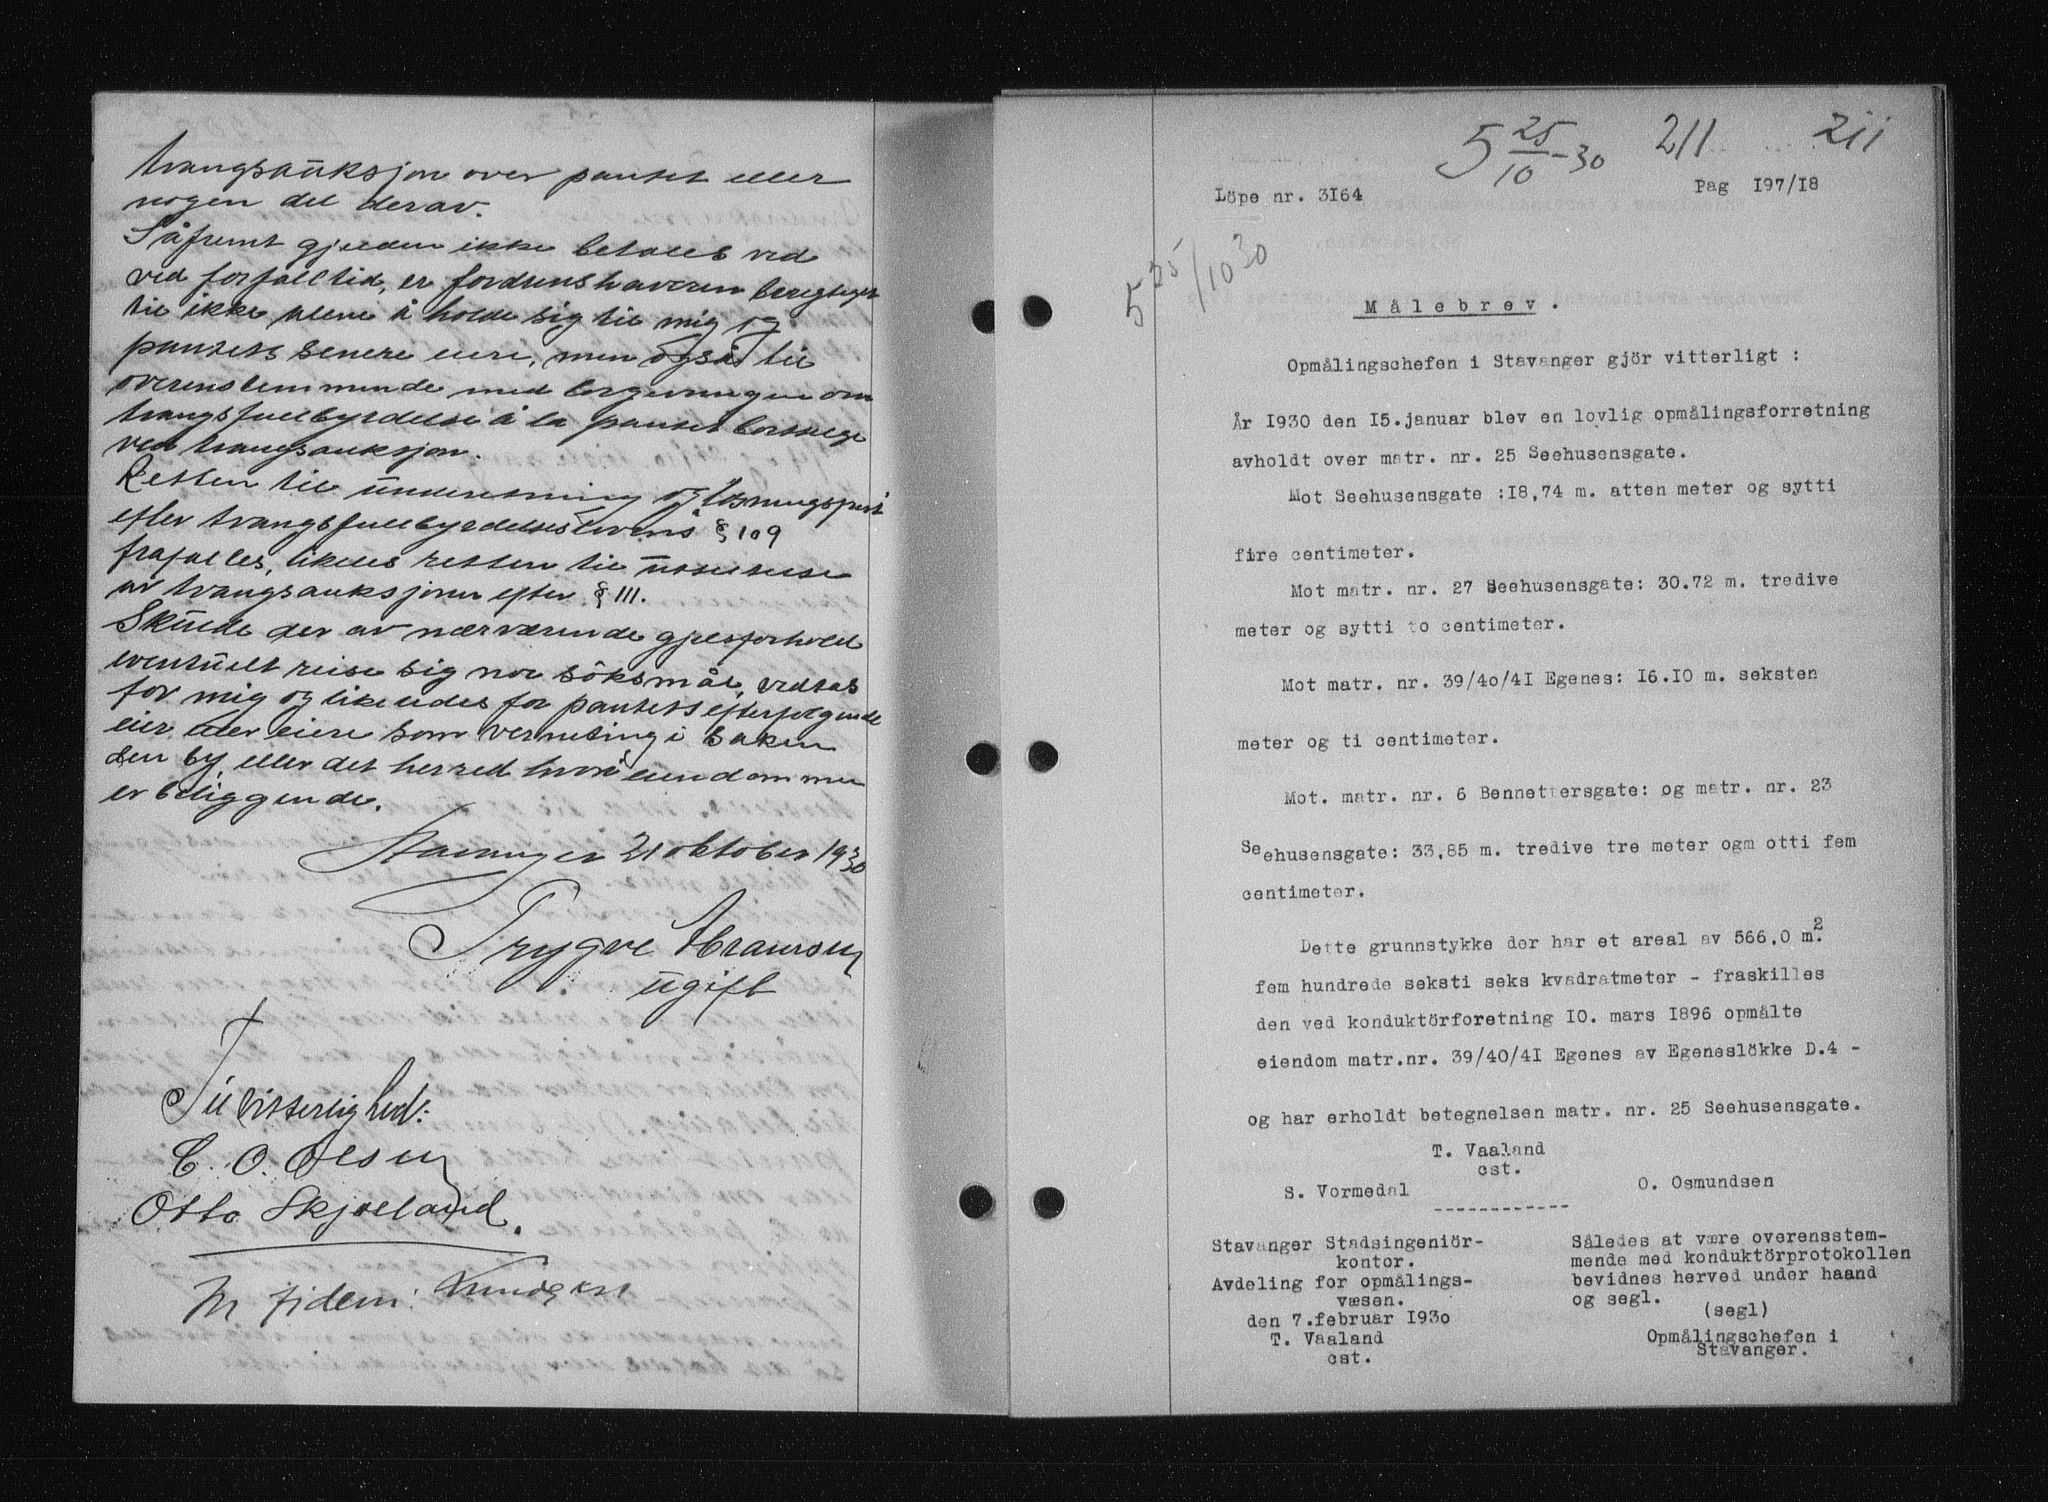 tvangsauksjon over pantet eller
nogen del derav.
Såfremt gjelden ikke betales ved
ved forfalltid, er fordrenshaveren beregtiget
til ikke alene å holde sig til mig og
pantets senere eiere, men også til
overenstemmende med lovgivningen om
tvangsfullbyrdelse å la pantet bortselge
ved tvangsauksjon.
Retten til underetning og løsningsfrist
efter tvangsfullbyrdelseslovens § 109
frafalles, likeles retten til utsettelse
av tvangsauksjonen efter § 111.
Skulde der av nærværende gjelsforhold
eventuelt reise sig noe söksmål, vedtas
for mig og likeledes for pantets efterfølgende
eier eller eiere som verneting i saken
den by, eller det herred hvori eiendommen
er beliggende.
Stavanger 21 oktober 1930
Trygve Abramsen
ugift
Til vitterlighed:
C. O. Olsen
Otto Skjæeland.
In fidem:
5 25/10-30 211 211
Löpe nr. 3164 Pag 197/18
5 25/10 30
Målebrev.
Opmålingschefen i Stavanger gjör vitterligt :
År 1930 den 15.januar blev en lovlig opmålingsforretning
avholdt over matr. nr. 25 Seehusensgate.
Mot Seehusensgate :18,74 m. atten meter og sytti
fire centimeter.
Mot matr. nr. 27 Seehusensgate: 30.72 m. tredive
meter og sytti to centimeter.
Mot matr. nr. 39/40/41 Egenes: 16.10 m. seksten
meter og ti centimeter.
Mot. matr. nr. 6 Bennettersgate: og matr. nr. 23
Seehusensgate: 33,85 m. tredive tre meter ogm otti fem
centimeter.
Dette grunnstykke der har et areal av 566,0 m².
fem hundrede seksti seks kvadratmeter - fraskilles
den ved konduktörforetning 10. mars 1896 opmålte
eiendom matr.nr. 39/40/41 Egenes av Egeneslökke D.4 -
og har erholdt betegnelsen matr. nr. 25 Seehusensgate.
T. Vaaland
cst.
S. Vormedal O. Osmundsen
-------------
Stavanger Stadsingeniör-
kontor.
Avdeling for opmålings-
væsen.
den 7.februar 1930
T. Vaaland
cst.
Således at være overensstem-
mende med konduktörprotokollen
bevidnes herved under haand
og segl.
(segl)
Opmålingschefen i
Stavanger.